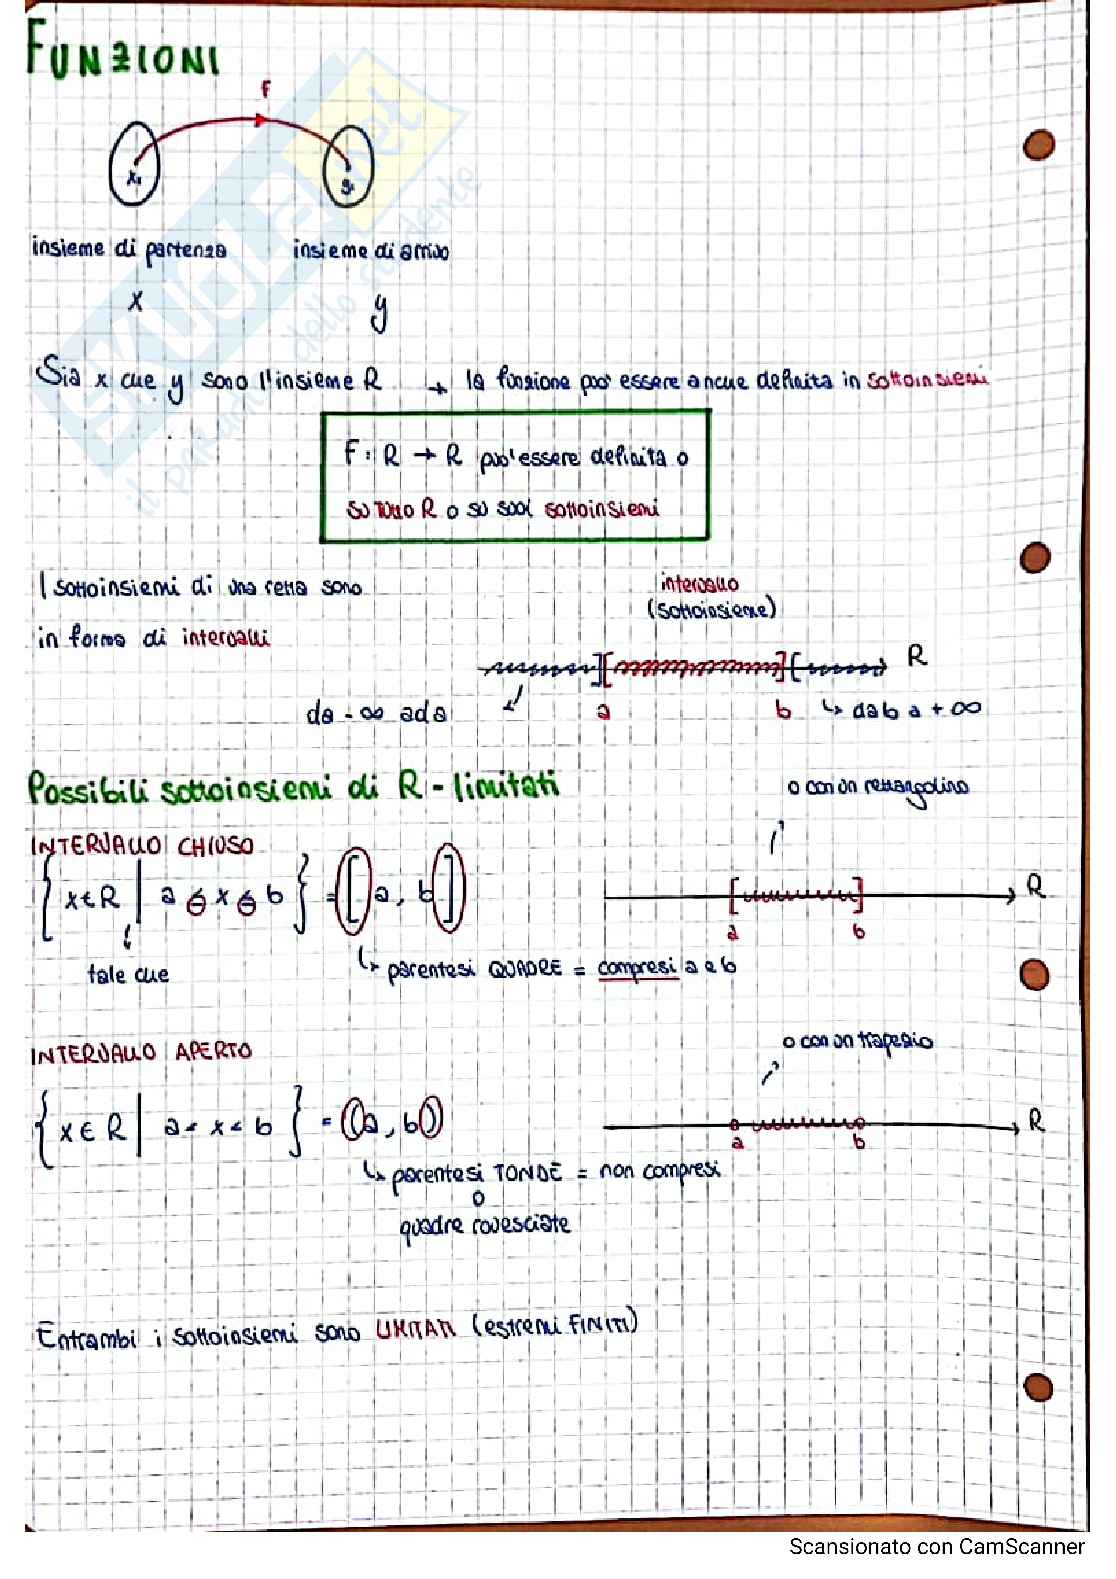 FUNZIONI
f
x₁ y₁
insieme di partenza insieme di arrivo
x y
Sia x che y sono l'insieme R → la funzione puo' essere anche definita in sottoinsiemi
F: R → R puo' essere definita o
su tutto R o su suoi sottoinsiemi
I sottoinsiemi di una retta sono
in forma di intervalli
intervallo
(sottoinsieme)
R
da -∞ ad a a b ↳ da b a +∞
Possibili sottoinsiemi di R - limitati
o con un rettangolino
INTERVALLO CHIUSO
{ x ∈ R | a ≤ x ≤ b } = [a, b]
R
a b
tale che
↳ parentesi QUADRE = compresi a e b
INTERVALLO APERTO
o con un trapezio
{ x ∈ R | a < x < b } = (a, b)
R
a b
↳ parentesi TONDE = non compresi
o
quadre rovesciate
Entrambi i sottoinsiemi sono LIMITATI (estremi FINITI)
SKUOLA.net
il paradiso dello studente
Scansionato con CamScanner